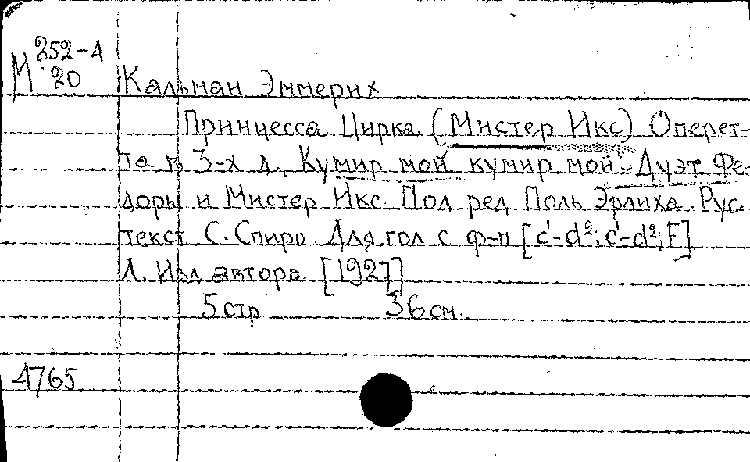 М 252-4
20
Кальман Эммерих
Принцесса Цирка (Мистер Икс) Оперет-
та в 3-х д. Кумир мой кумир мой. Дуэт Фе-
доры и Мистер Икс. Под ред Поль Эрлиха. Рус.
текст С. Спиро Для гол с ф-п [c'-d²; c'-d²; F]
Л. Изд автора [1927]
5 стр 36 см.
4765